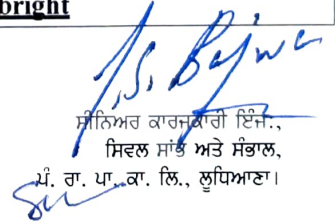 bright
J.S. Bajwa
ਸੀਨਿਅਰ ਕਾਰਜਕਾਰੀ ਇੰਜ.,
ਸਿਵਲ ਸਾਂਭ ਅਤੇ ਸੰਭਾਲ,
ਪੰ. ਰਾ. ਪਾ. ਕਾ. ਲਿ., ਲੁਧਿਆਣਾ।